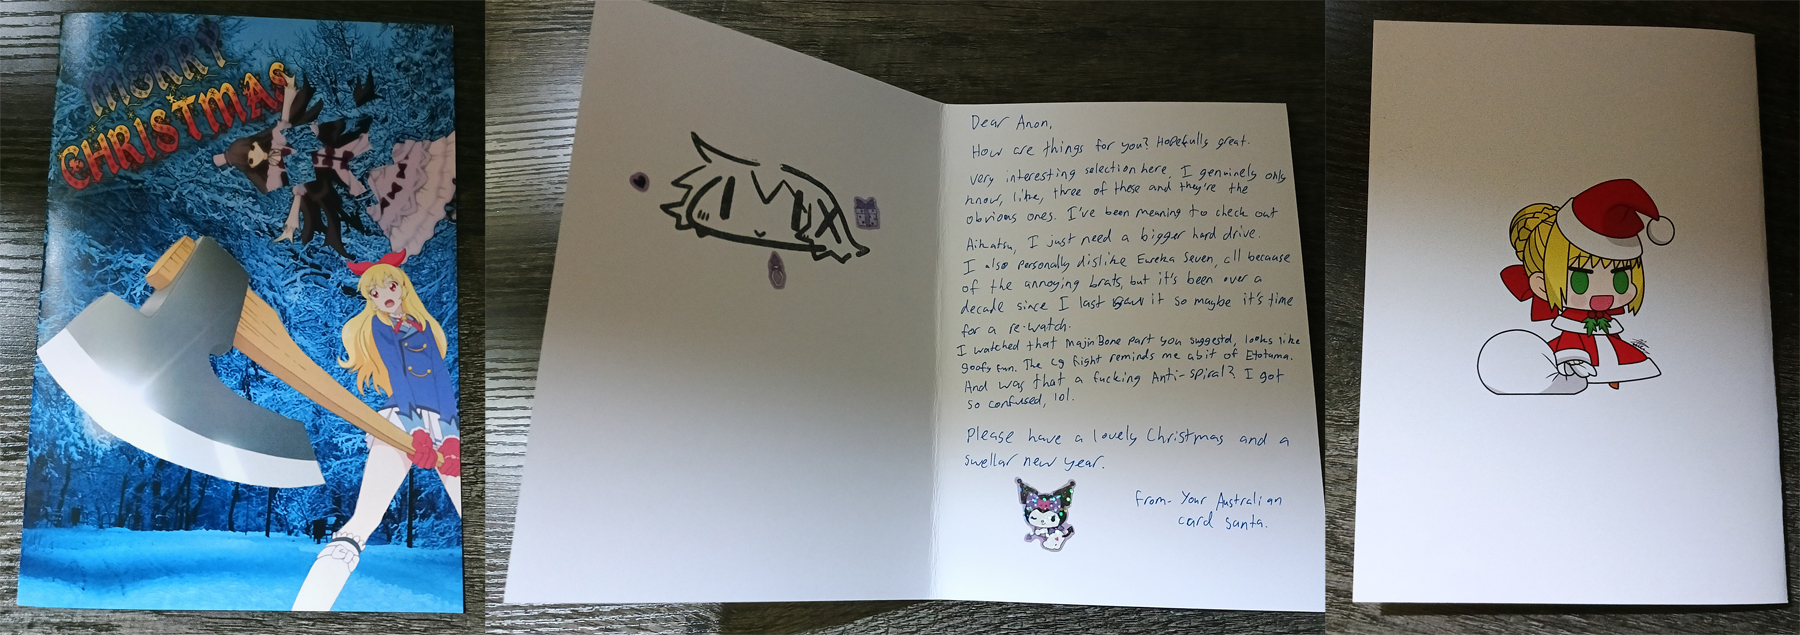 MERRY
CHRISTMAS
Dear Anon,
How are things for you? Hopefully great.
Very interesting selection here, I genuinely only
know, like, three of these and they're the
obvious ones. I've been meaning to check out
Aikatsu, I just need a bigger hard drive.
I also personally dislike Eureka Seven, all because
of the annoying brats, but it's been over a
decade since I last saw it so maybe it's time
for a re-watch.
I watched that Majin Bone part you suggestd, looks like
goofy fun. The cg fight reminds me abit of Etotama.
And was that a fucking Anti-spiral? I got
so confused, lol.
Please have a lovely Christmas and a
swellar new year.
From- Your Australian
card santa.